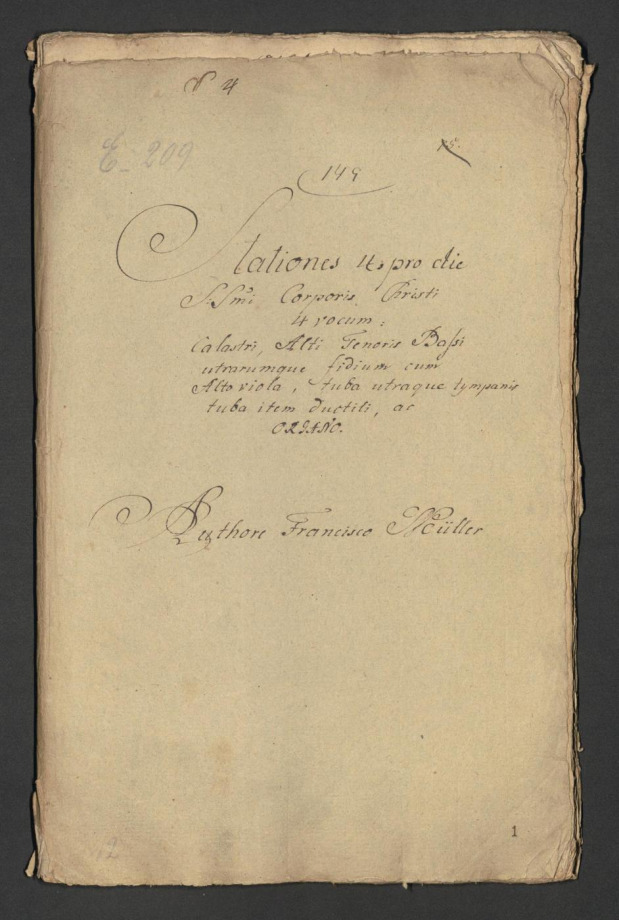 N 4
E. 209
149
Stationes 4, pro die
S.Smi Corporis Christi
4 vocum:
Calastri, Alti Tenoris Bassi
utrarumque fidium cum
Alto viola, tuba utraque tympanis
tuba item ductili, ac
ORGANO.
Authore Francisco Müller
1
12